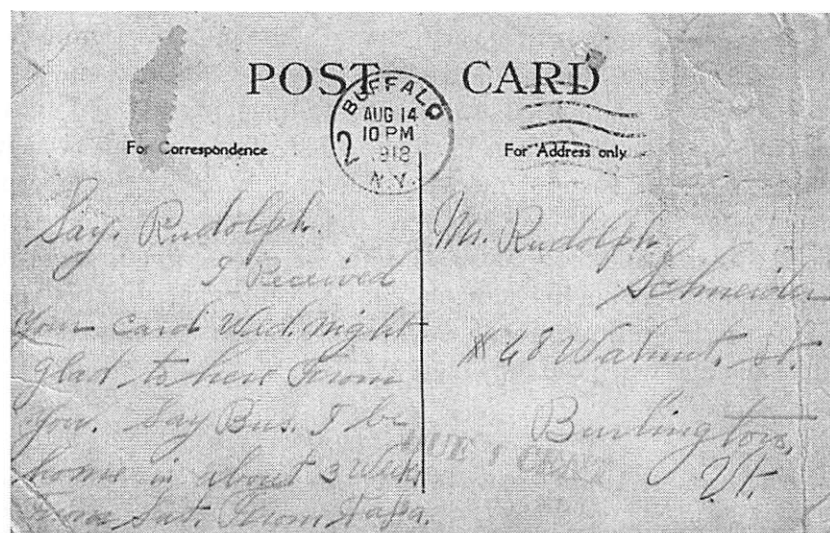 POST CARD
BUFFALO
AUG 14
10 PM
1918
N.Y.
2
For Correspondence
For Address only
Say. Rudolph.
I Received
your card Wed. night
glad to here From
you. Say Bus. I be
home in about 3 Weeks
From Sat. From
Mr. Rudolph
Schneider
# 68 Walnut. st.
Burlington,
Vt.
DUE 1 CENT